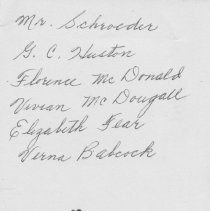 Mr. Schroeder
G. C. Huston
Florence Mc Donald
Vivian Mc Dougall
Elizabeth Fear
Verna Babcock